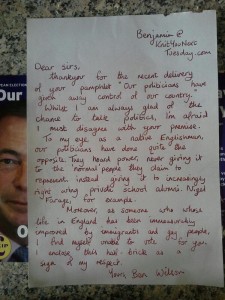 Benjamin @
KnitYouNoSe
Tuesday.com
Dear sirs,
thankyou for the recent delivery
of your pamphlet "Our politicians have
given away control of our country."
Whilst I am always glad of the
chance to talk politics, I'm afraid
I must disagree with your premise.
To my eye as a native Englishman,
our politicians have done quite the
opposite. They hoard power, never giving it
to the normal people they claim to
represent instead giving it to increasingly
right wing private school alumni. Nigel
Farage, for example.
Moreover, as someone who whose
life in England has been immeasurably
improved by immigrants and gay people,
I find myself unable to vote for you.
I enclose this half-brick as a
sign of my respect.
Yours Ben Wilson
Our